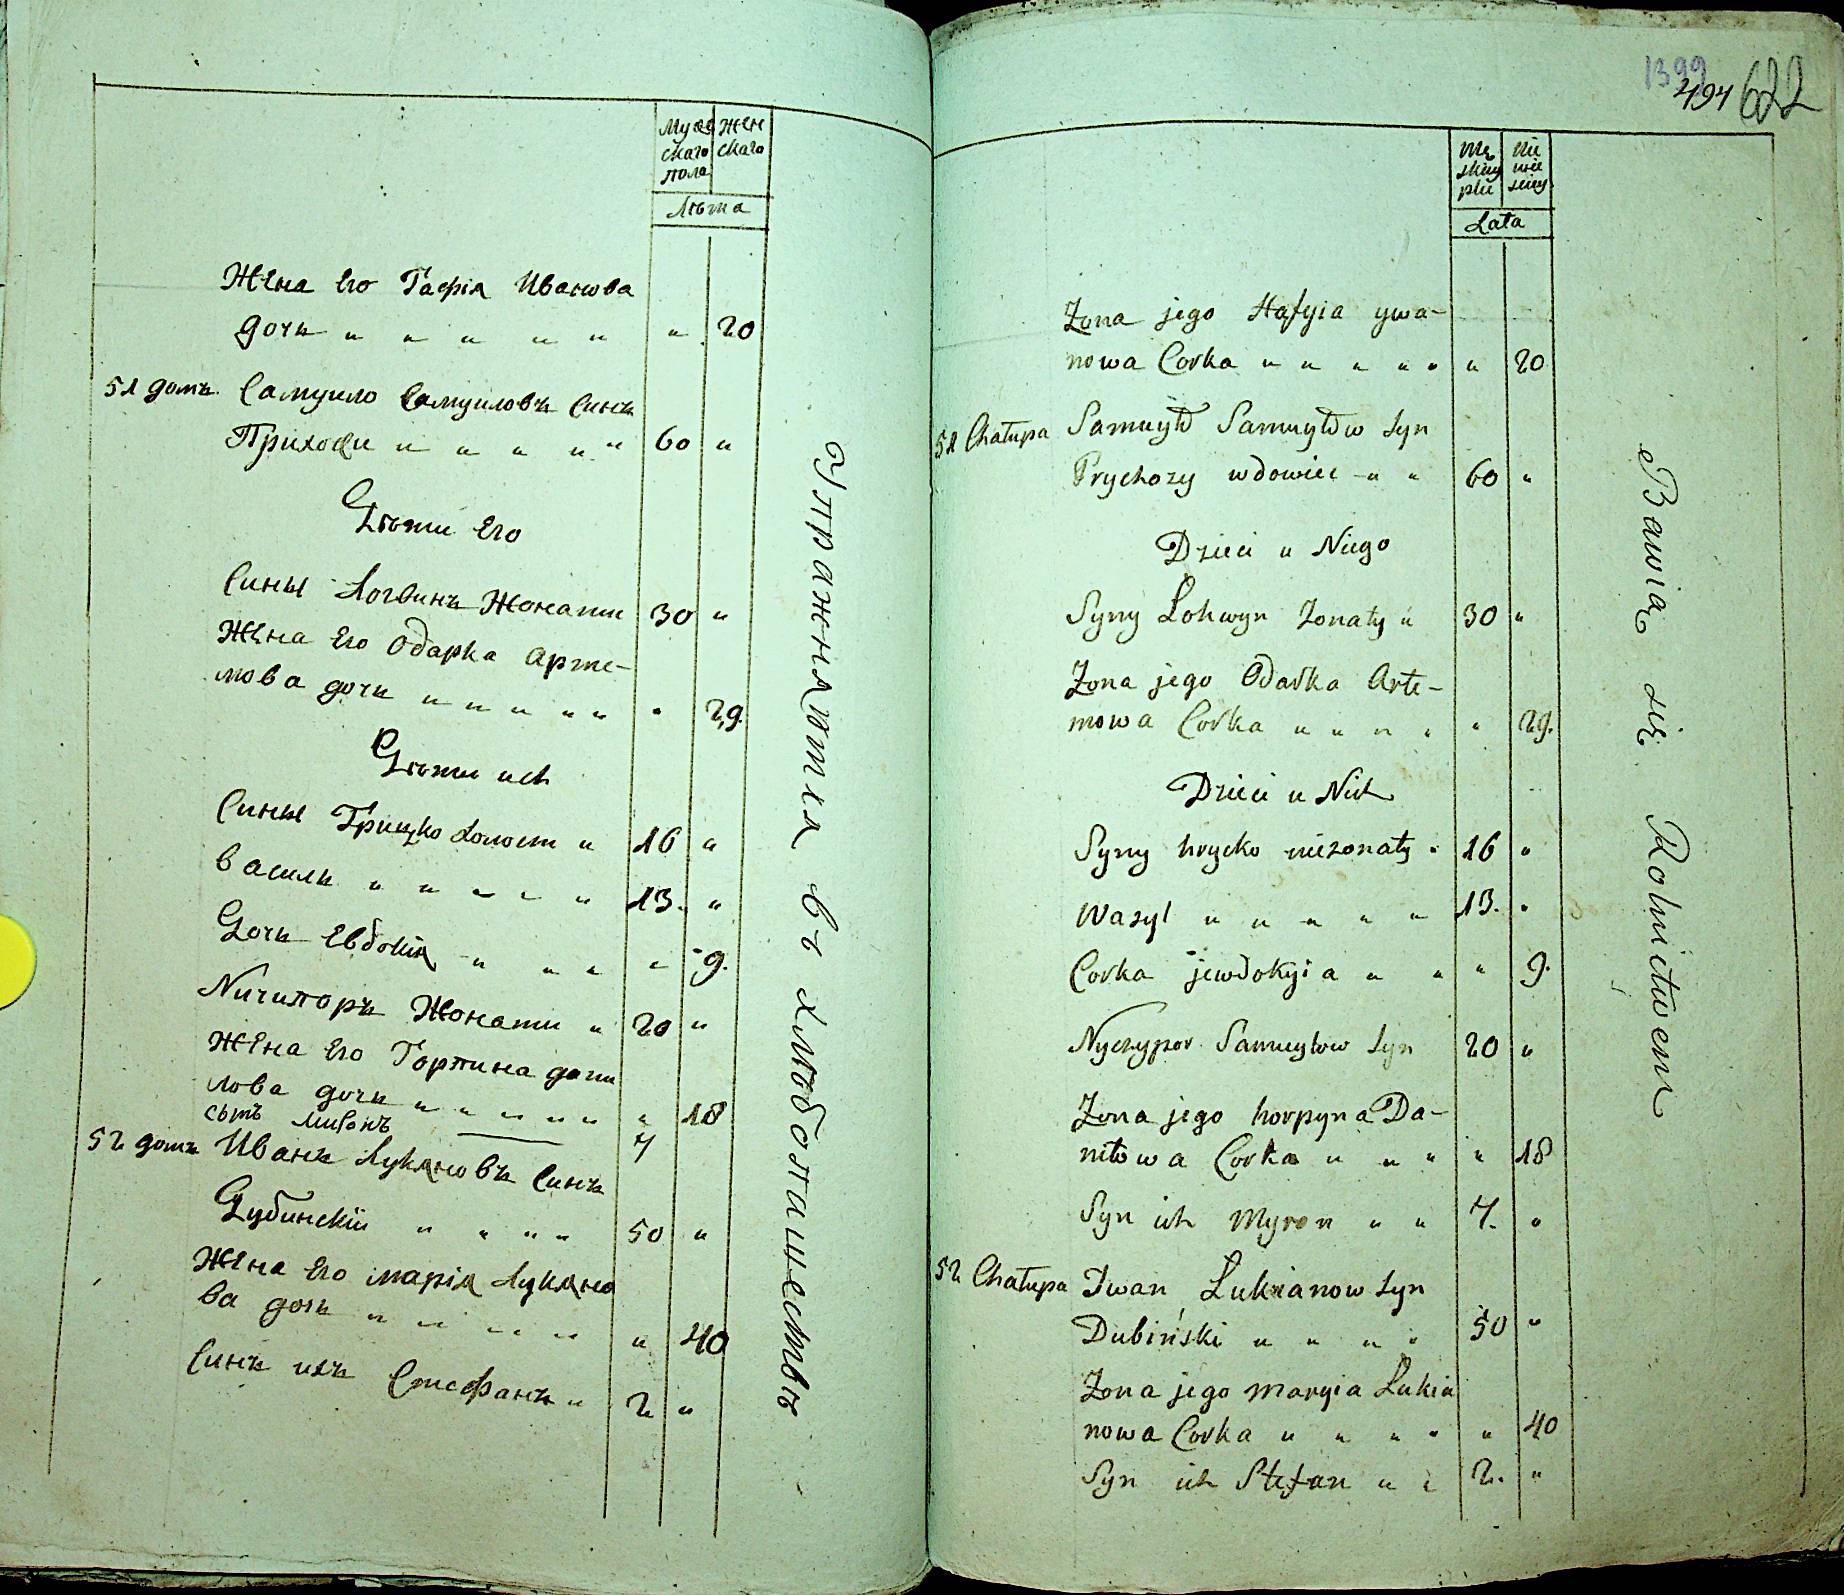 Муже
скаго
пола
Жен
скаго
Лѣта
Жена Его Гафія Иванова
дочь " " " " " " 20
51 домъ. Самуило Самуиловъ Синъ
Приходи " " " " " 60 "
Дѣти Его
Сины Логвинъ Жонати 30 "
Жена Его Одарка Арте-
мова дочь " " " " " " 29.
Дѣти ихъ
Сины Грицко холост " 16 "
Василь " " " " " 13. "
Дочь Евдокія " " " " 9.
Ничипоръ Жонати " 20 "
Жена Его Горпина дани
лова дочь " " " " " " 18
сынъ миронъ 7
52 домъ Иванъ Лукяновъ Синъ
Дубинскій " " " " 50 "
Жена Его марія Лукяно
ва дочь " " " " " 40
Синъ ихъ Стефанъ " 2 "
Упражняются въ хлѣбопашествѣ
1399
494 622
Mę
skiey
płci
Nie
wie
sciey
Lata
Zona jego Hafyia ywa-
nowa Corka " " " " " " 20
51 Chałupa Samuyło Samuyłow Syn
Prychozy wdowiec " " 60 "
Dzieci u Niego
Syny Lohwyn Zonaty " 30 "
Zona jego Odarka Arte-
mowa Corka " " " " " 29.
Dzieci u Nich
Syny hrycko niezonaty " 16 "
Wasyl " " " " " 13. "
Corka jewdokyia " " " 9.
Nyczypor Samuyłow Syn 20 "
Zona jego horpyna Da-
niłowa Corka " " " " 18
Syn ich Myron " " 7. "
52 Chałupa Iwan Lukianow Syn
Dubiński " " " " 50 "
Zona jego Maryia Lukia
nowa Corka " " " " " 40
Syn ich Stefan " " 2. "
Bawią się Rolnictwem